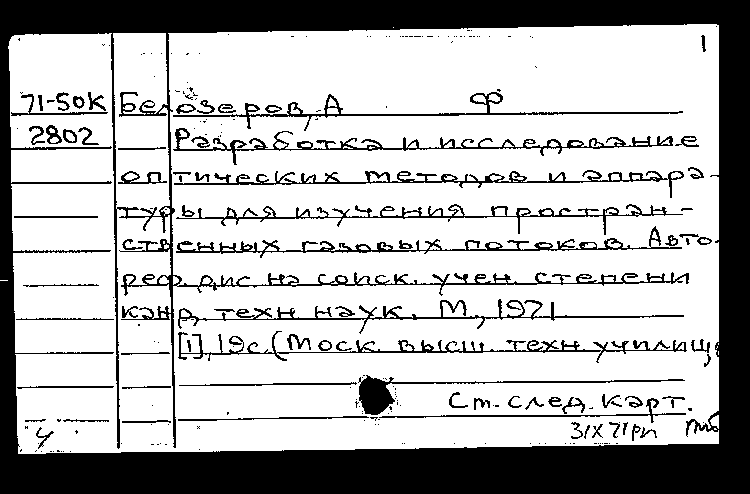 1
71-50К Белозеров, А Ф
2802 Разработка и исследование
оптических методов и аппара-
туры для изучения простран-
ственных газовых потоков. Авто-
реф. дис. на соиск. учен. степени
канд. техн наук. М., 1971
[1], 19с. (Моск. высш. техн. училище
Ст. след. карт.
4 31X 71рп